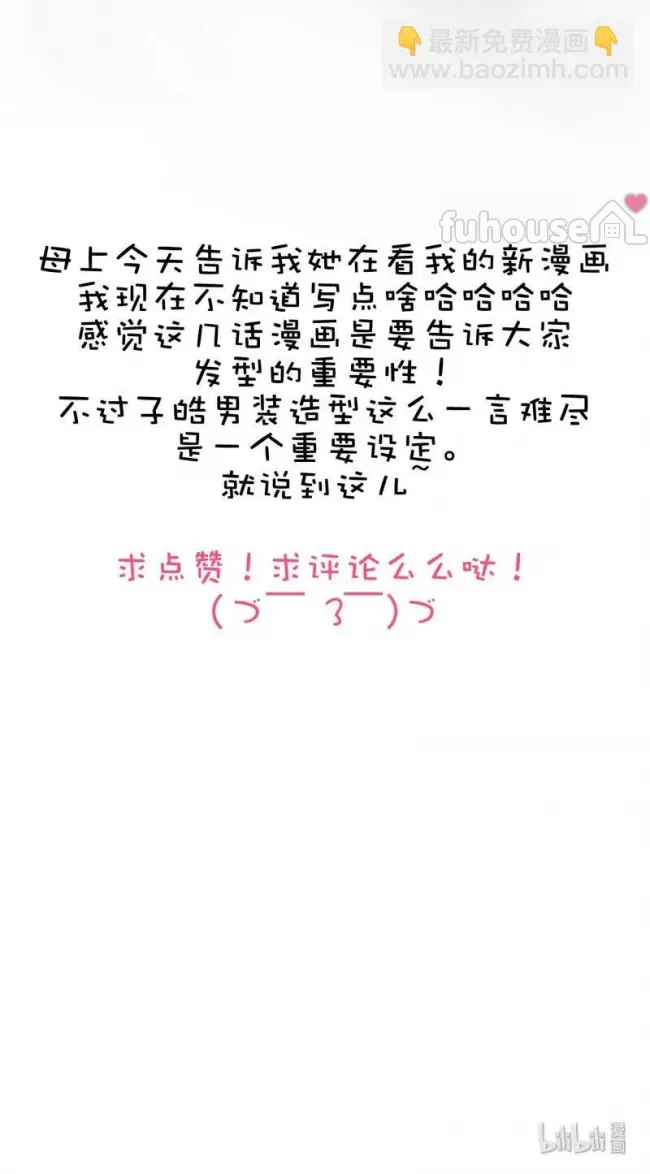 👇最新免费漫画👇
www.baozimh.com
fuhouse
母上今天告诉我她在看我的新漫画
我现在不知道写点啥哈哈哈哈
感觉这几话漫画是要告诉大家
发型的重要性！
不过子皓男装造型这么一言难尽
是一个重要设定。
就说到这儿~
求点赞！求评论么么哒！
(づ￣ 3￣)づ
bilibili漫画